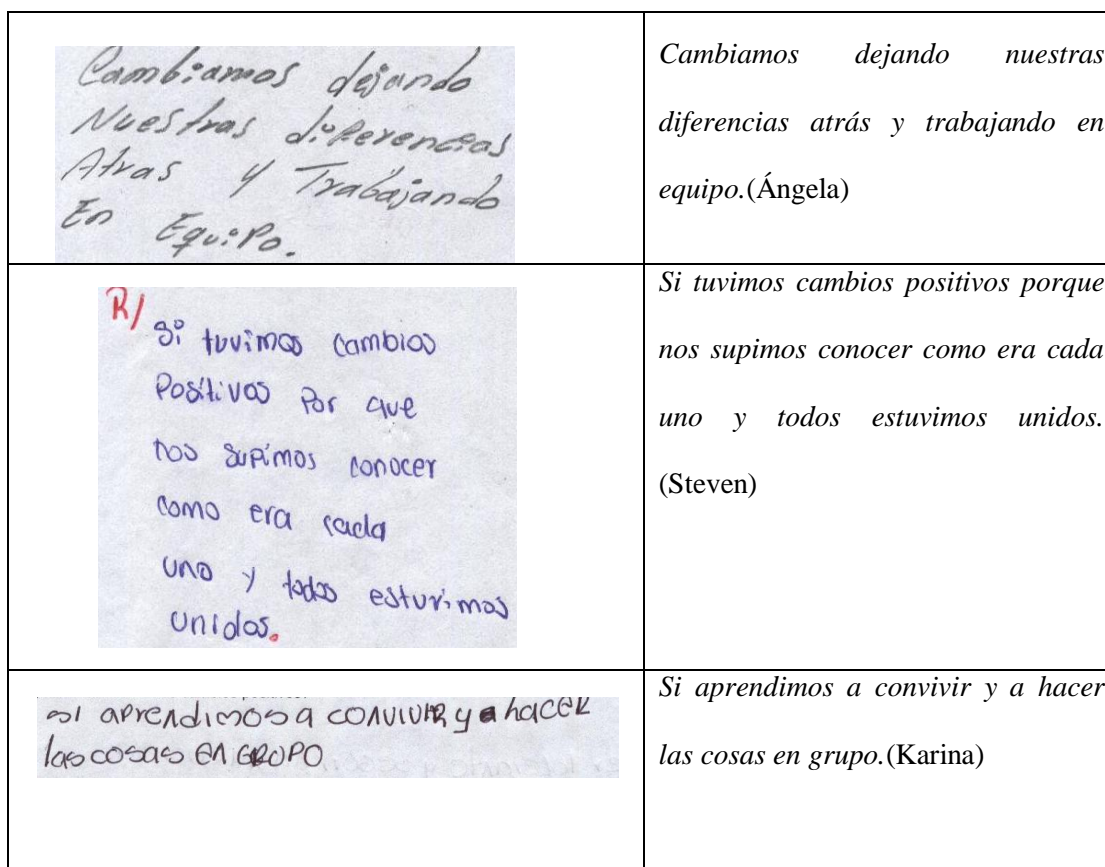 Cambiamos dejando
Nuestras diferencias
Atras y Trabajando
En Equipo.
Cambiamos dejando nuestras
diferencias atrás y trabajando en
equipo.(Ángela)
R/
Si tuvimos cambios
Positivos Por que
nos supimos conocer
como era cada
uno y todos estuvimos
unidos.
Si tuvimos cambios positivos porque
nos supimos conocer como era cada
uno y todos estuvimos unidos.
(Steven)
si aprendimos a convivir y a hacer
las cosas en grupo
Si aprendimos a convivir y a hacer
las cosas en grupo.(Karina)